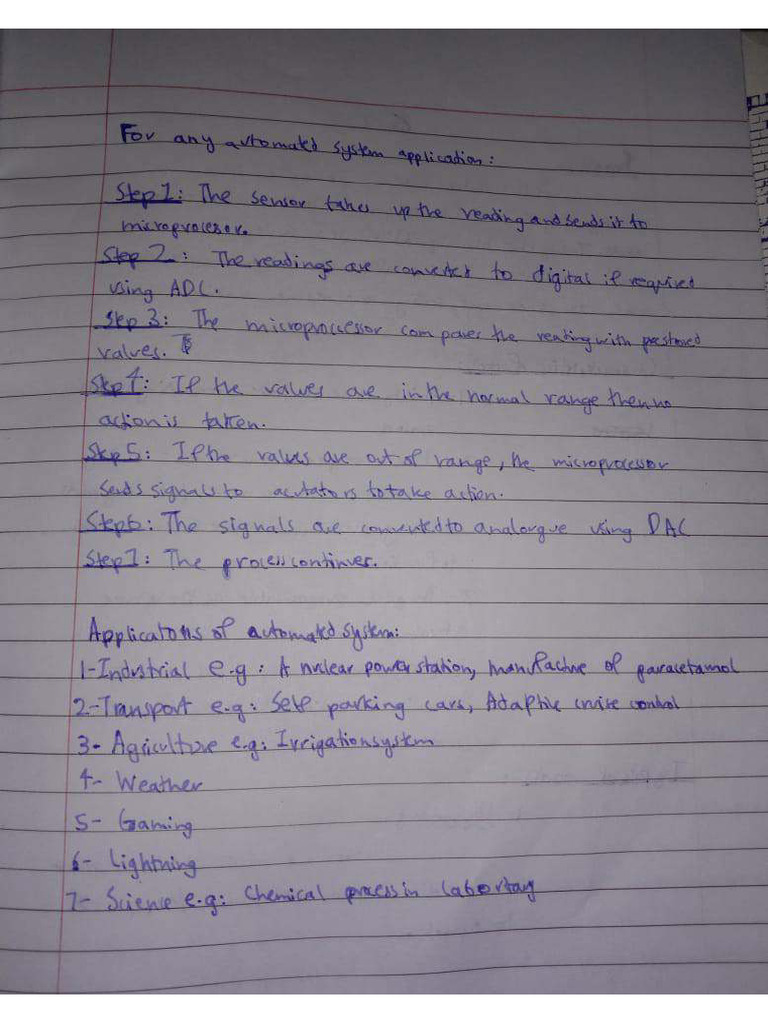 For any automated system application:
Step 1: The sensor takes up the reading and sends it to
microprocesor.
Step 2: The readings are converted to digital if required
using ADC.
Step 3: The microprocessor compares the reading with prestored
values.
Step 4: If the values are in the normal range then no
action is taken.
Step 5: If the values are out of range, the microprocessor
sends signals to acutators to take action.
Step 6: The signals are converted to analorgue using DAC
Step 7: The process continues.
Applications of automated system:
1- Industrial e.g: A nuclear power station, manufacture of paracetamol
2- Transport e.g: Self parking cars, Adaptive cruise control
3- Agriculture e.g: Irrigation system
4- Weather
5- Gaming
6- Lightning
7- Science e.g: Chemical process in labortay